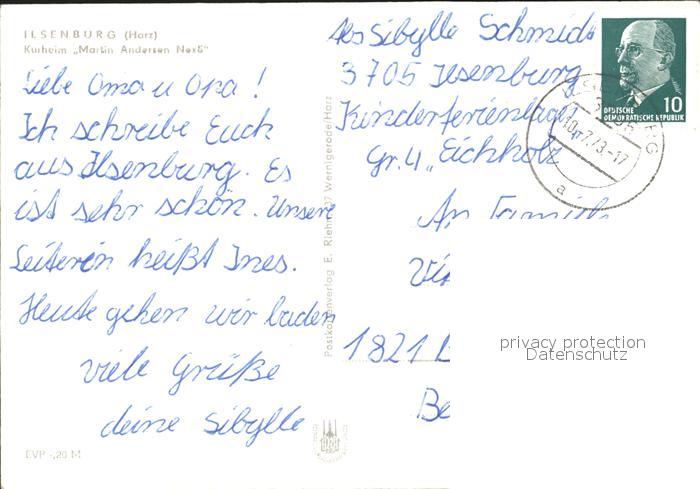 ILSENBURG (Harz)
Kurheim „Martin Andersen Nexö"
Liebe Oma u Opa!
Ich schreibe Euch
aus Ilsenburg. Es
ist sehr schön. Unsere
Leiterin heißt Ines.
Heute gehen wir baden
viele Grüße
deine Sibylle
EVP -,20 M
Postkartenverlag E. Riehn, 37 Wernigerode/Harz
Abs Sibylle Schmidt
3705 Ilsenburg
Kinderferienlager
Gr. 4 „Eichholz
An Familie
1821
DEUTSCHE 10
DEMOKRATISCHE REPUBLIK
ILSENBURG
3705
10.-7.73.-17
a
privacy protection
Datenschutz